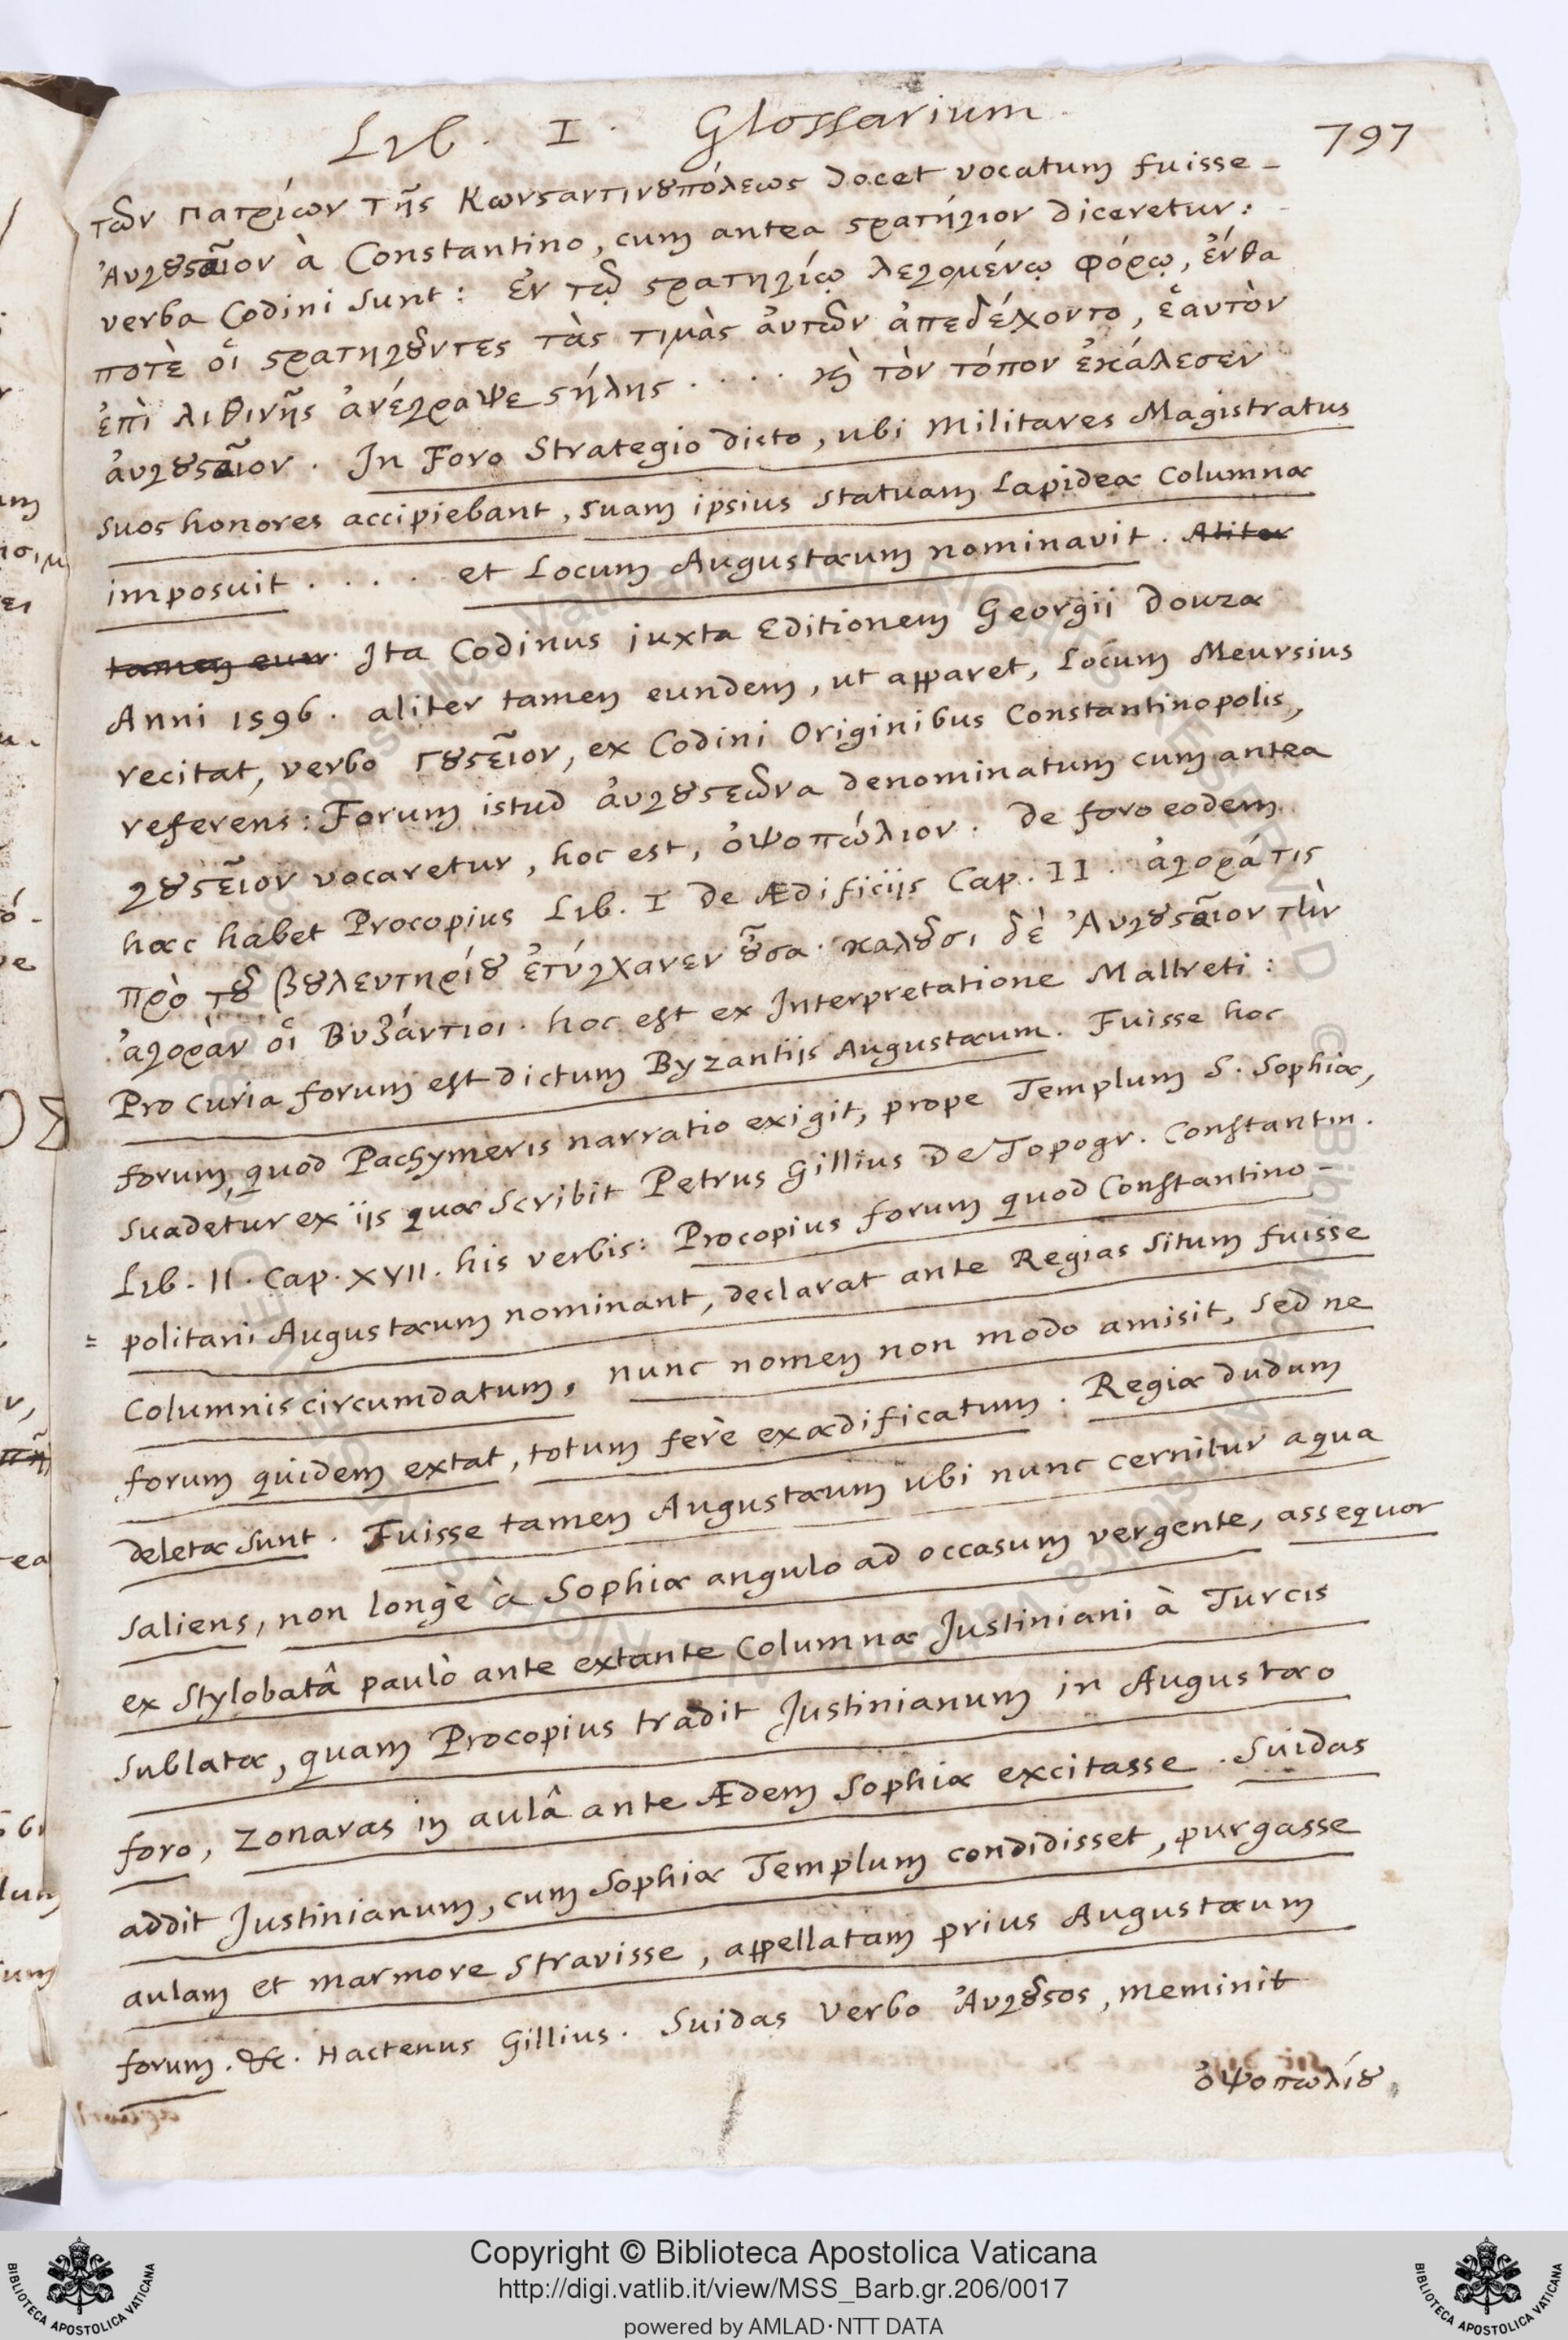 Lib. I. Glossarium.
797
τῶν πατρίων τῆς Κωνϛαντινȣπόλεως docet vocatum fuisse -
Ἀυγȣϛαῖον à Constantino, cum antea ϛρατήγιον diceretur:
verba Codini sunt: ἐν τῷ ϛρατηγίῳ λεγομένῳ φόρῳ, ἔνθα
ποτὲ οἱ ϛρατηγȣ͂ντες τὰς τιμὰς ἀυτῶν ἀπεδέχοντο, ἑαυτὸν
ἐπὶ λιθινῆς ἀνέγραψε ϛήλης . . . . ϗ τὸν τόπον ἐκάλεσεν
ἀυγȣϛαῖον. In Foro Strategio dicto, ubi Militares Magistratus
suos honores accipiebant, suam ipsius statuam Lapideæ Columnæ
imposuit . . . . et Locum Augustæum nominavit. Aliter
tamen eun. Ita Codinus juxta Editionem Georgii Douzæ
Anni 1596. aliter tamen eundem, ut apparet, Locum Meursius
recitat, verbo Γȣϛεῖον, ex Codini Originibus Constantinopolis,
referens: Forum istud ἀυγȣϛεῶνα denominatum cum antea
γȣϛεῖον vocaretur, hoc est, ὀψοπώλιον. De foro eodem
hæc habet Procopius Lib. I De Ædificijs Cap. II. ἀγορά τις
πρὸ τȣ͂ βȣλευτηρίȣ ἐτύγχανεν ȣ̓͂σα· καλȣ͂σι δὲ Ἀυγȣϛαῖον τὴν
ἀγορὰν οἱ Βυζάντιοι. hoc est ex Interpretatione Maltreti:
Pro Curia forum est dictum Byzantijs Augustæum. Fuisse hoc
forum, quod Pachymeris narratio exigit, prope Templum S. Sophiæ,
suadetur ex iis quæ scribit Petrus Gillius De Topogr. Constantin.
Lib. II. Cap. XVII. his verbis: Procopius forum quod Constantino-
= politani Augustæum nominant, declarat ante Regias situm fuisse
Columnis circumdatum, nunc nomen non modo amisit, sed ne
forum quidem extat, totum ferè exædificatum. Regiæ dudum
deletæ sunt. Fuisse tamen Augustæum ubi nunc cernitur aqua
saliens, non longè à Sophiæ angulo ad occasum vergente, assequor
ex Stylobatâ paulò ante extante Columnæ Justiniani à Turcis
sublatæ, quam Procopius tradit Justinianum in Augustæo
foro, Zonaras in aulâ ante Ædem Sophiæ excitasse. Suidas
addit Justinianum, cum Sophiæ Templum condidisset, purgasse
aulam et marmore stravisse, appellatam prius Augustæum
forum. &c. Hactenus Gillius. Suidas Verbo Ἀυγȣϛος, meminit
ὀψοπωλίȣ
Copyright © Biblioteca Apostolica Vaticana
http://digi.vatlib.it/view/MSS_Barb.gr.206/0017
powered by AMLAD·NTT DATA